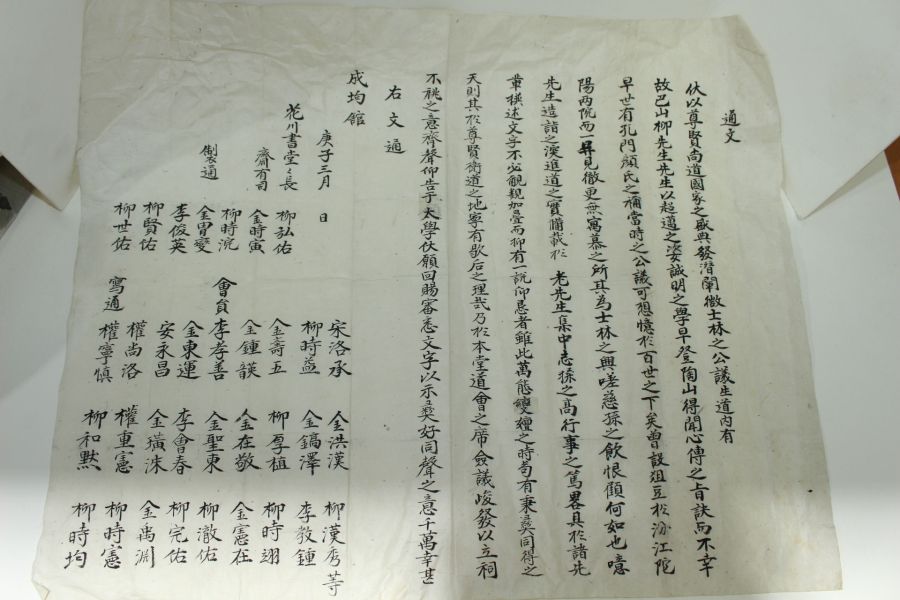 通文
伏以尊賢尙道國家之盛典發潛闡微士林之公議生道內有
故巴山柳先生先生以超邁之姿誠明之學早登陶山得聞心傳之旨訣而不幸
早世有孔門顔氏之稱當時之公議可想憶於百世之下矣曾設俎豆於汾江陀
陽兩院而一畀見撤更無寓慕之所其爲士林之興嗟慈孫之飮恨顧何如也噫
先生造詣之深進道之實備載於 老先生集中志孫之高行事之篤畧具於諸先
輩撰述文字不必覼覶加疊而抑有一說仰恳者雖此萬態變嬗之時苟有秉彛同得之
天則其於尊賢衛道之地寧有歇后之理哉乃於本堂道會之席僉議峻發以立祠
不祧之意齊聲仰告于 太學伏願回賜審悉文字以示彛好同聲之意千萬幸甚
右文通
成均館
庚子三月 日
花川書堂堂長 柳弘佑
齋有司 金時寅
柳時浣
製通 金冑燮
李俊英
柳賢佑
柳世佑
會員 宋洛承 金洪漢 柳漢秀等
柳時益 金鎬澤 李敎鍾
金壽五 柳厚植 柳時翊
金鍾韺 金在敬 金憲在
李孝善 金聖東 柳澈佑
金東運 李會春 柳完佑
安永昌 金璜洙 金禹淵
寫通 權尙洛 權重憲 柳時憲
權寧愼 柳和默 柳時均